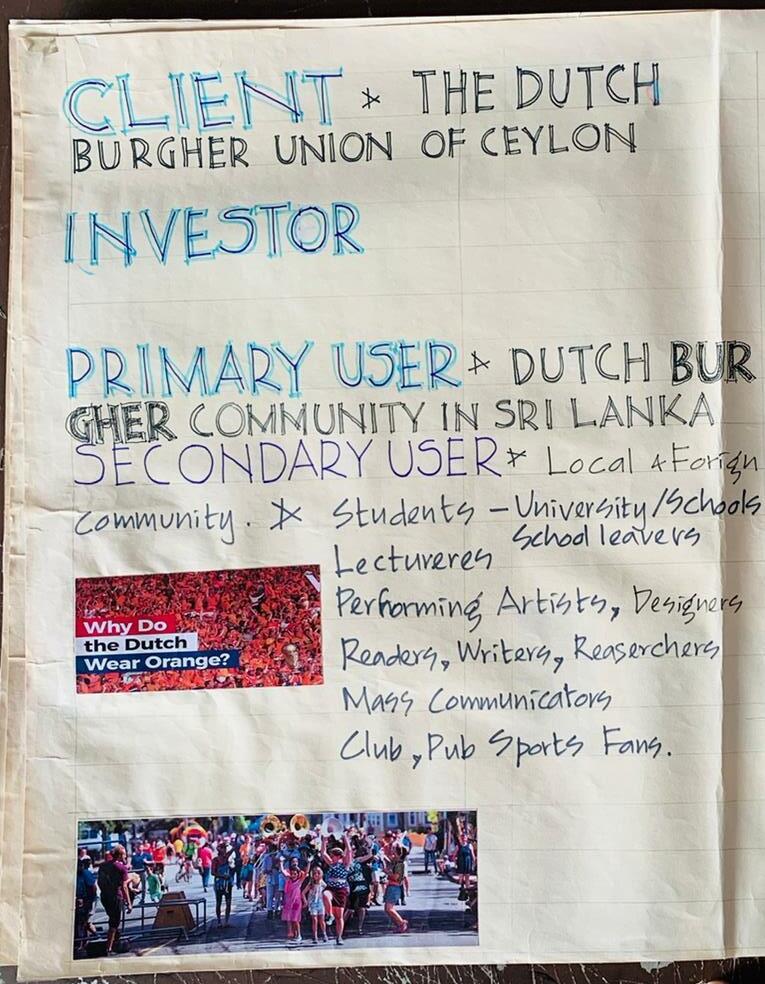 CLIENT * THE DUTCH
BURGHER UNION OF CEYLON
INVESTOR
PRIMARY USER * DUTCH BUR
GHER COMMUNITY IN SRI LANKA
SECONDARY USER * Local & Forign
Community. * Students - University/Schools
School leavers
Lectureres
Performing Artists, Designers
Readers, Writers, Reaserchers
Mass Communicators
Club, Pub Sports Fans.
Why Do
the Dutch
Wear Orange?